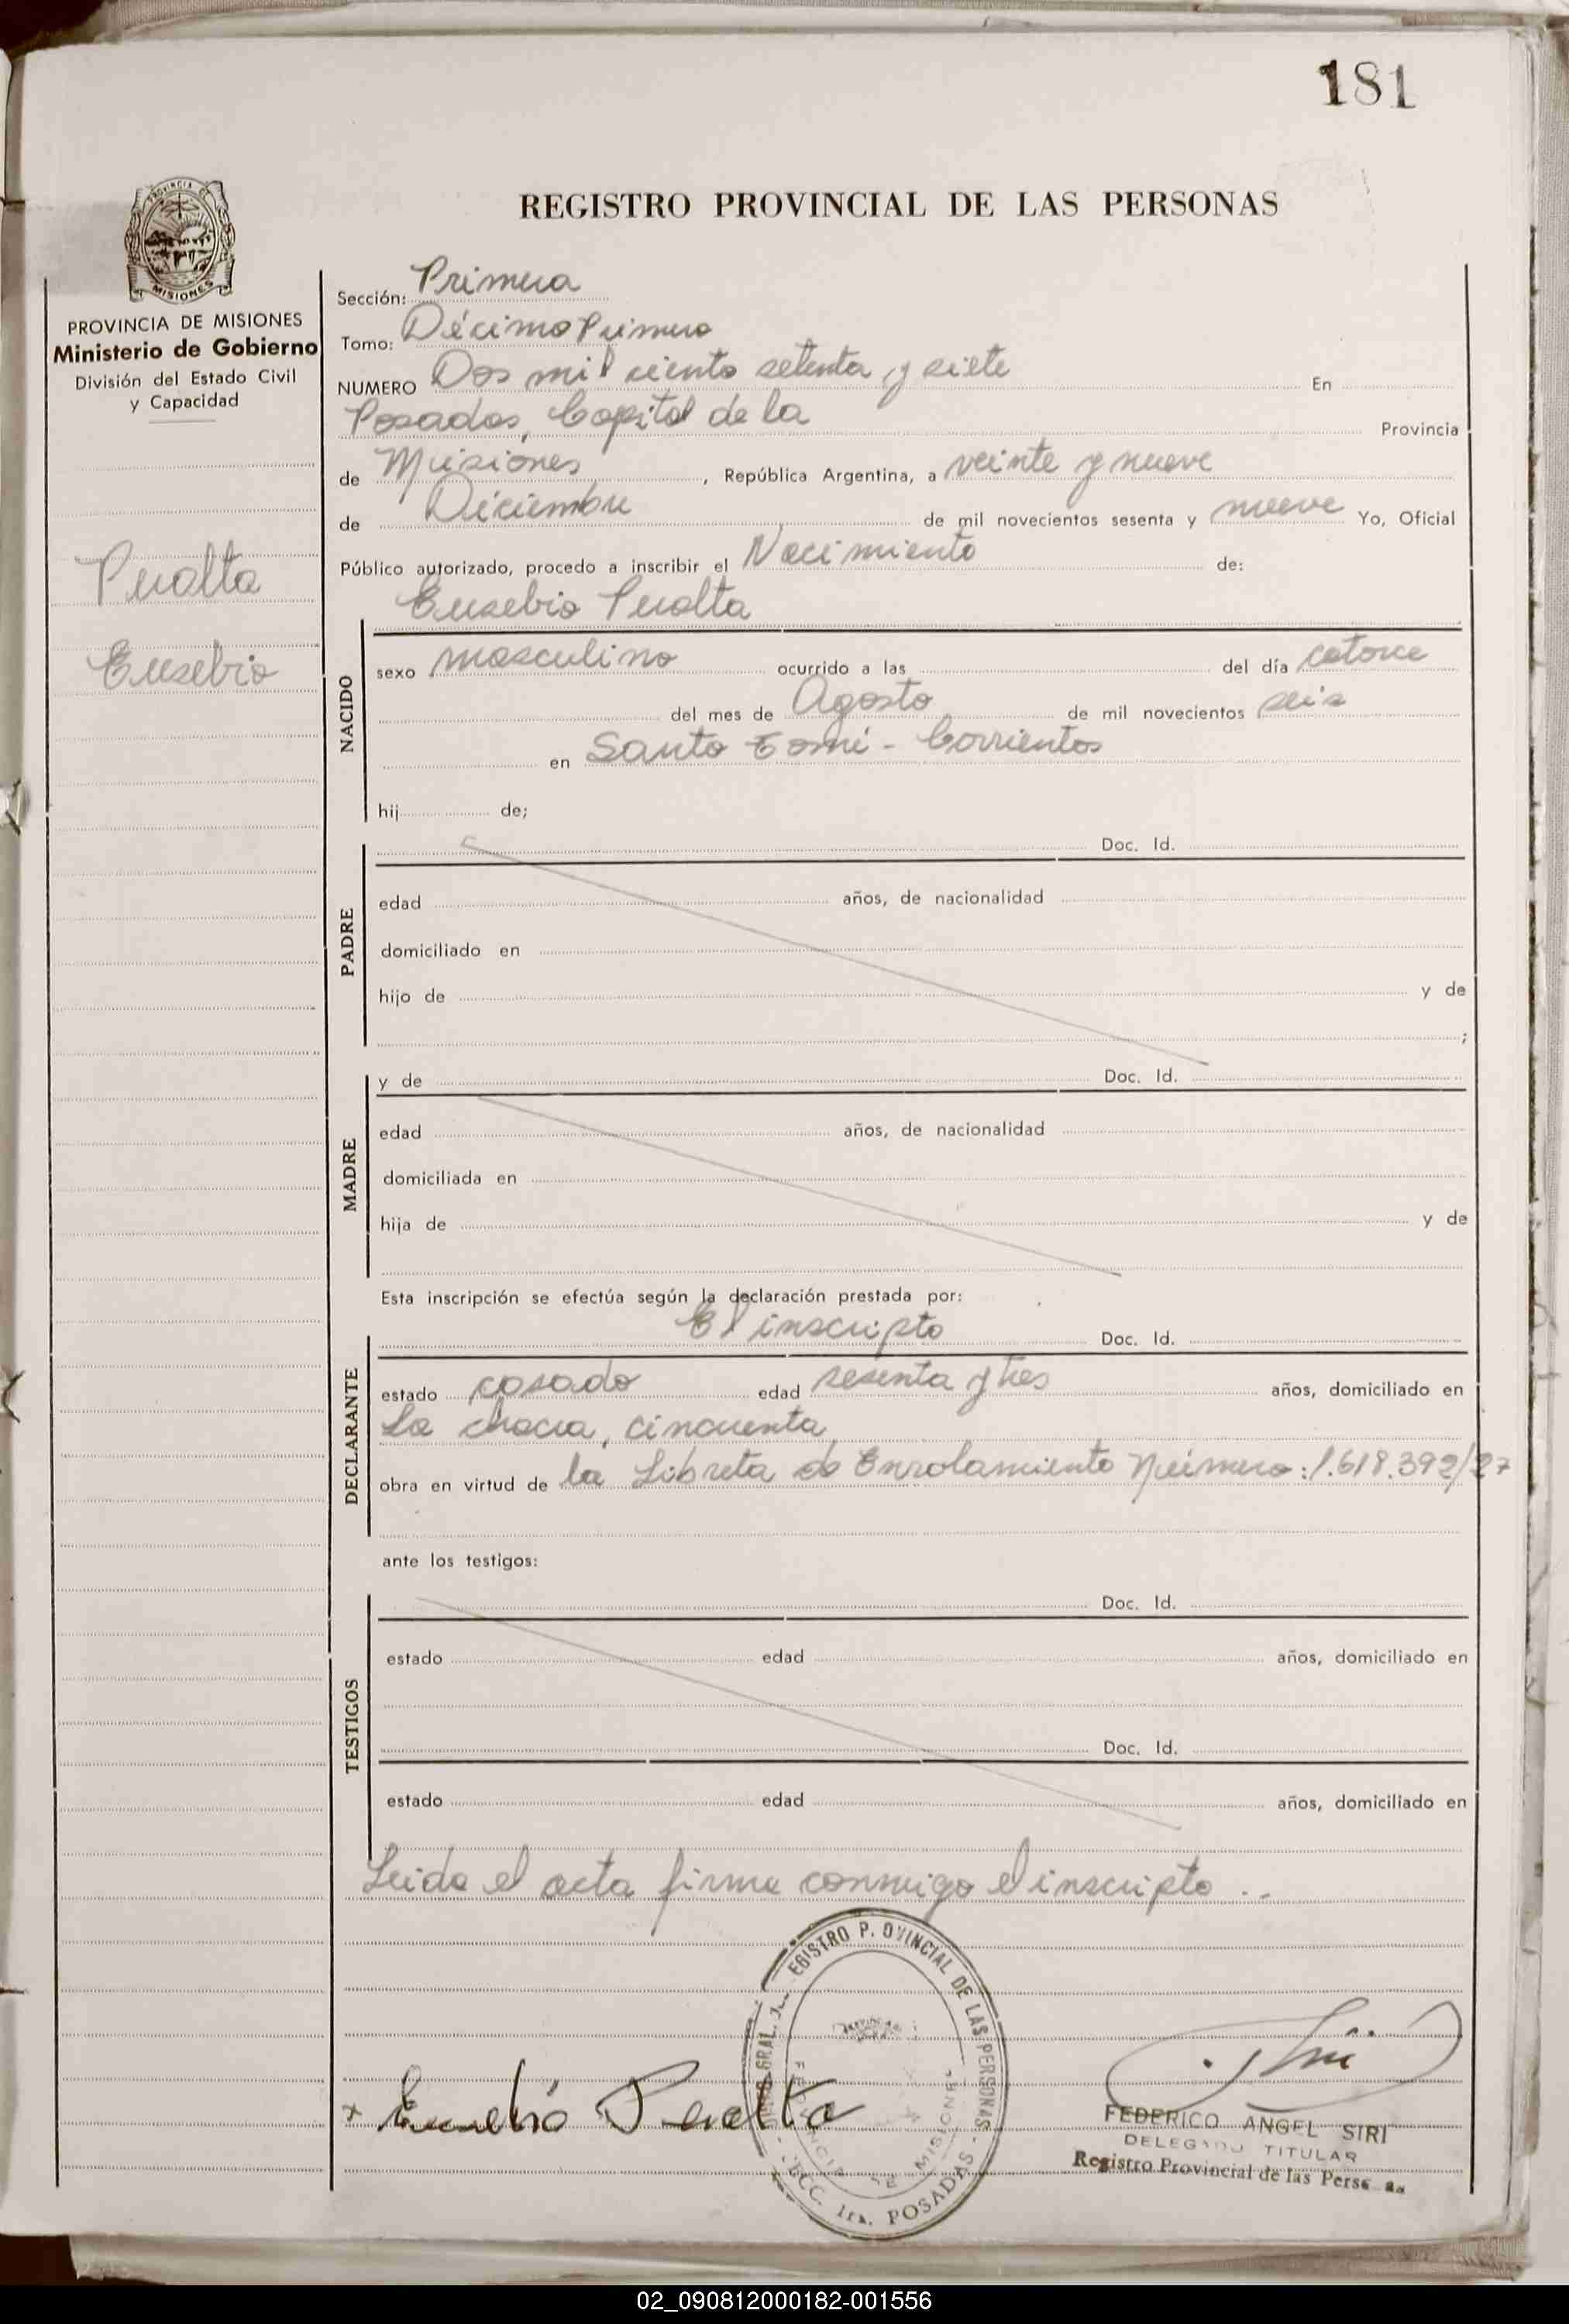 181
REGISTRO PROVINCIAL DE LAS PERSONAS
PROVINCIA DE MISIONES
Ministerio de Gobierno
División del Estado Civil
y Capacidad
Peralta
Eusebio
Sección: Primera
Tomo: Décimo Primero
NUMERO Dos mil ciento setenta y siete En
Posadas, Capital de la Provincia
de Misiones, República Argentina, a veinte y nueve
de Diciembre de mil novecientos sesenta y nueve Yo, Oficial
Público autorizado, procedo a inscribir el Nacimiento de:
Eusebio Peralta
NACIDO
sexo masculino ocurrido a las del día catorce
del mes de Agosto de mil novecientos seis
en Santo Tomé - Corrientes
hij de;
PADRE
Doc. Id.
edad años, de nacionalidad
domiciliado en
hijo de y de
;
MADRE
y de Doc. Id.
edad años, de nacionalidad
domiciliada en
hija de y de
Esta inscripción se efectúa según la declaración prestada por:
DECLARANTE
El inscripto Doc. Id.
estado casado edad sesenta y tres años, domiciliado en
La chacra, cincuenta
obra en virtud de la Libreta de Enrolamiento Número: 1.618.392/27
ante los testigos:
TESTIGOS
Doc. Id.
estado edad años, domiciliado en
Doc. Id.
estado edad años, domiciliado en
Leida el acta firma conmigo el inscripto..
x Eusebio Peralta
GRAL. EGISTRO P. OVINCIAL DE LAS PERSONAS
MISIONES
SECC. 1ra. POSADAS
FEDERICO ANGEL SIRI
DELEGADO TITULAR
Registro Provincial de las Personas
02_090812000182-001556